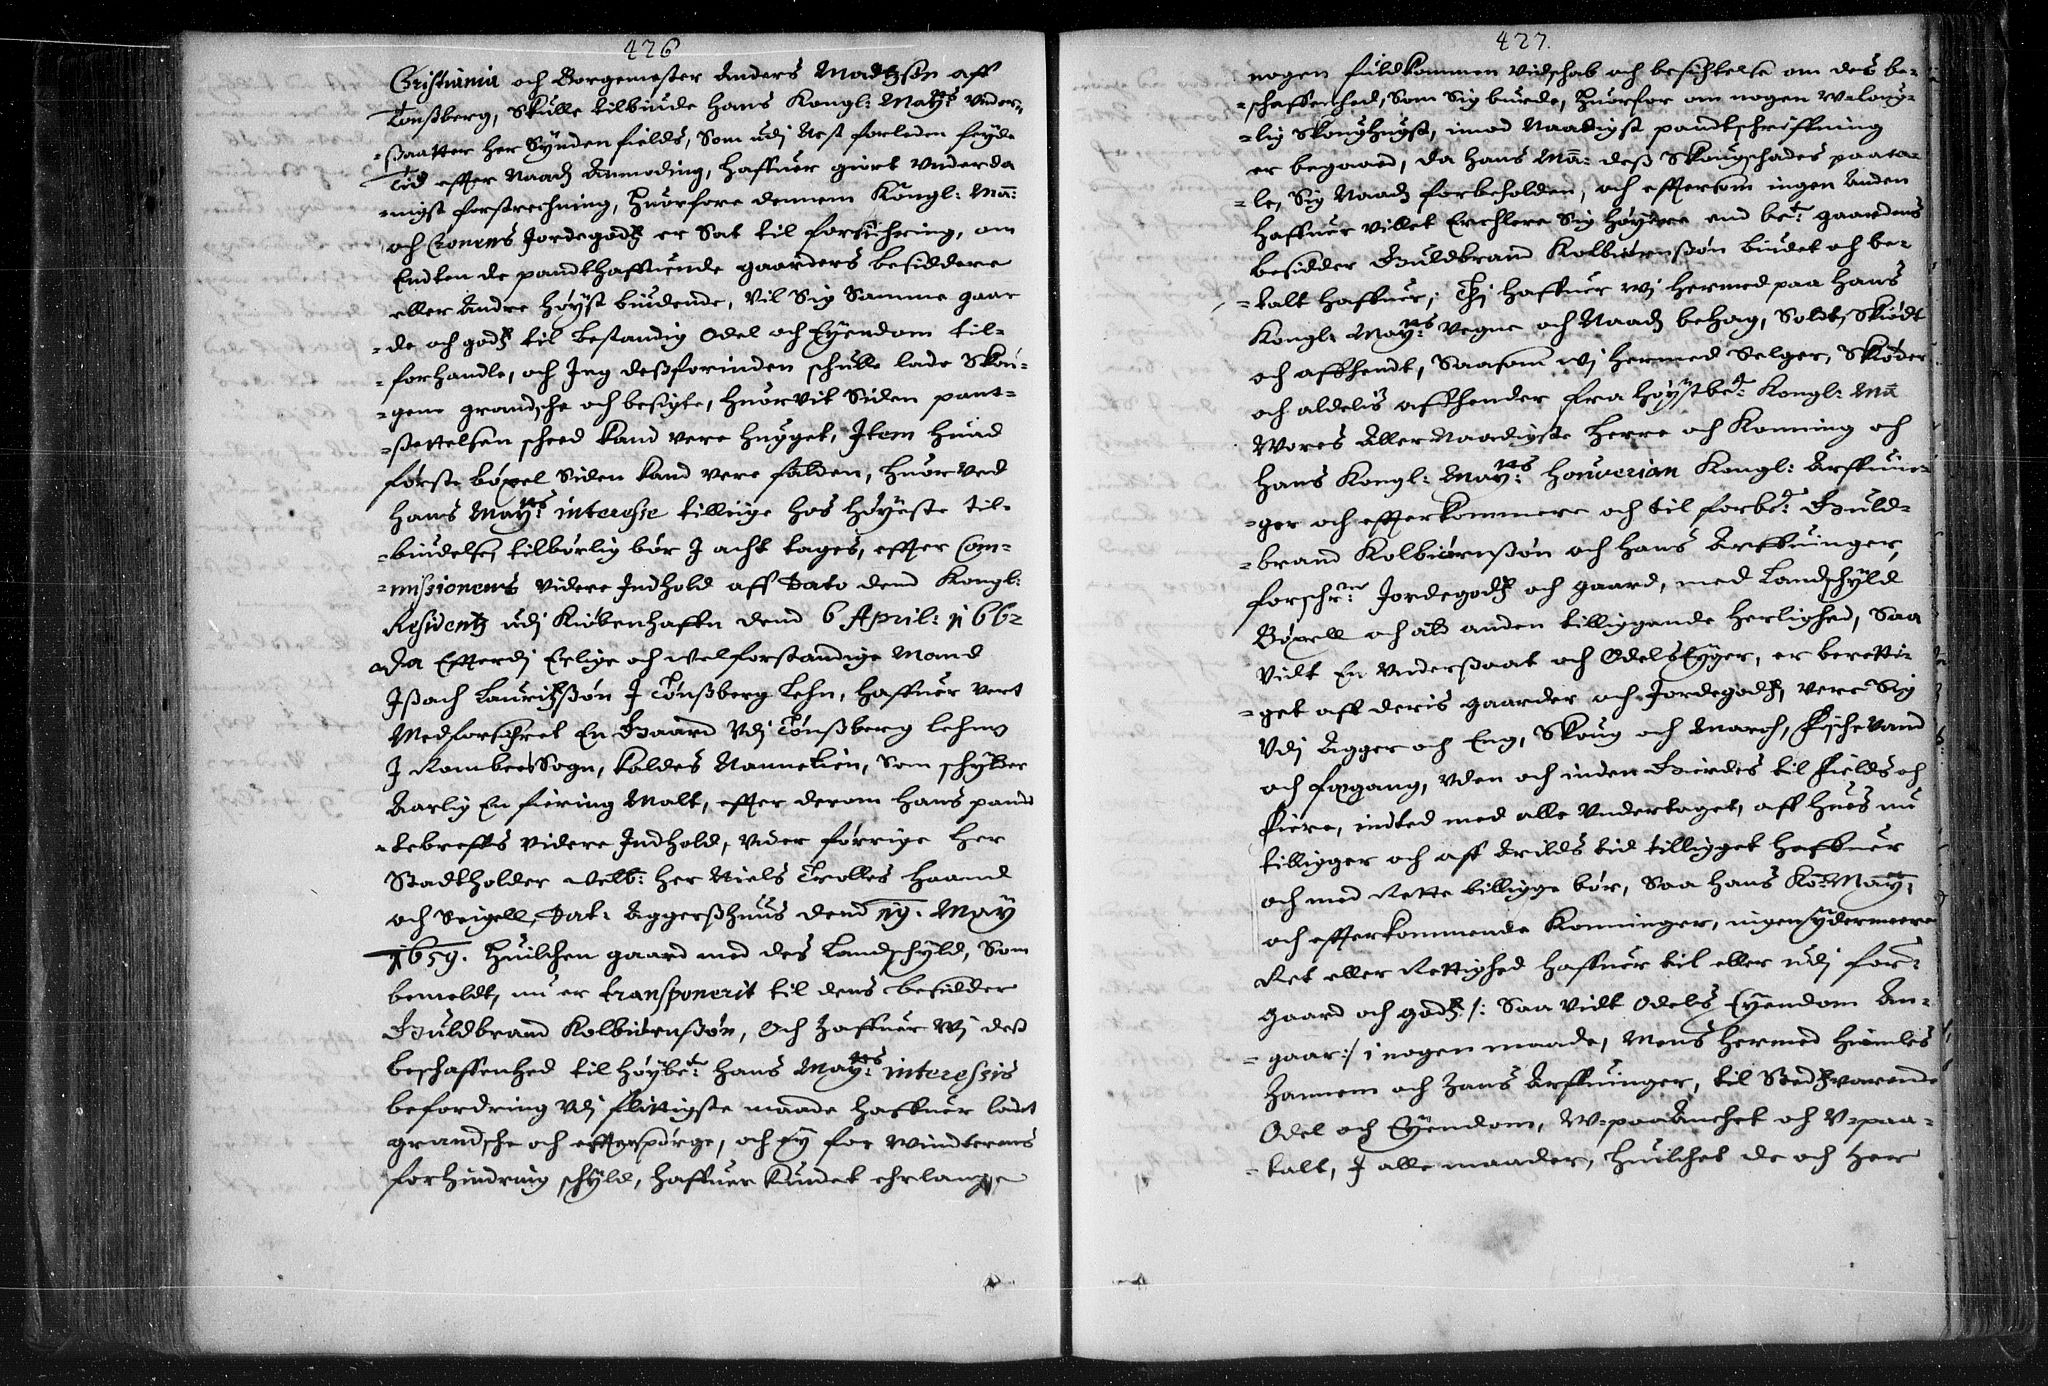 426
Cristiania och Borgemester Anders Madtzsøn aff
Tonßberg, Skulle tilbiude Hans Kongl: May:ts vnder-
-saatter her Synden fields, Som udj Nest forleden feyde
Tid effter Naad: Anmoding, haffuer giort vnderda
-nigst forstrechning, Huorfore dennem Kongl: Ma:
och Cronens Jordegodtz er Sat til forsichring, om
Endten de pandthaffuende gaarders besiddere
eller Andre Høyst biudende, vil Sig Samme gaar
-de och godtz til bestandig Odel och Eyendom til-
-forhandle, och Jeg deßforinden schulle lade Skou-
-gene grandsche och besigte, huorvit Siden pant-
-settelsen scheed kand vere hugget, Item huad
første bøxel Siden kand vere falden, huorved
hans May:ts interesse tillige hos Høyeste til-
-biudelse, tilbørlig bør J acht tages, effter Com-
-missionens videre Indhold aff Dato dend Kongl:
Residentz udj Kiøbenhaffn dend 6 April: 1662
Da Efterdj Erlige och welforstandige Mand
Jsach Lauritzßøn J Tønßberg Lehn, haffuer vert
Medforschret En Gaard Vdj Tønßberg Lehns
J Ramberssogn, kaldes Nannetien, Som schylder
Aarlig En fiering Malt, effter derom hans pand
-tebreffs videre Indhold, vnder forrige Her
Stadtholder Velb: Her Niels Trolles Haand
och Seigell, Dat: Aggerßhuus dend 19. May
1659. Huilchen gaard med des Landschyld, Som
bemeldt, nu er transponerit til dens besidder
Guldbrand Kolbiørnßøn, Och haffuer Wj deß
beschaffenhed til Høybe:te hans May:ts interessis
befordring Vdj flittigste maade haffuer ladet
grandsche och efterspørge, och ey for Windterens
forhindring schyld, haffuer kundet ehrlange
427.
nogen fuldkommen vidschab och besichtelse om des be-
-schaffenhed, Som Sig burde, Huorfor om nogen Wloug-
-lig Skoughugst, imod Naadigst pandtschriffning
er begaaed, da hans Ma: deß Skougschades paata-
-le, Sig Naad: forbeholden, och effterson ingen Anden
haffuer villet Erchlere Sig Høyere end be:te gaardens
besidder Guldbrand Kolbiørnßøn biudet och be-
-talt haffuer; Thj haffuer wj hermed paa hans
Kongl: May:ts vegne och Naad: behag, Soldt, Skiødt
och affhendt, Saasom wj hermed Selger, Skøder
och aldelis affhender fra Høystbe:te Kongl: Ma
Wores Aller Naadigste Herre och Konning och
Hans Kongl: May:ts Souverian Kongl: Arffuin-
-ger och effterkommere och til forbe:te Guld-
-brand Kolbiørnßøn och hans Arffuinger,
forschr:ne Jordegodtz och gaard, med Landschyld
Bøxell och ald anden tilliggende Herlighed, Saa
vidt En Vnderßaat och Odels Eyger, er beretti-
-get aff deris gaarder och Jordegodtz, vere Sig
Vdj Agger och Eng, Skoug och March, Fischevand
och foxgang, vden och inden Gierdes til Fields och
Fiere, indted med alle vndertaget, aff hues nu
tilligger och aff Arilds tid tilligget haffuer
och med Rette tilligge bør, Saa hans Ko: May:
och efterkommende Konninger, ingen ydermeere
Ret eller Rettighed haffuer til eller udj for:
gaard och godtz /: Saa vidt Odels Eyendom An-
-gaar :/ i nogen maade, Mens hermed himles
hannem och hans Arffuinger, til Stedtzvarende
Odel och Eyendom, W-paaanchet och V-paa-
-talt, J alle maader, huilchet de och her